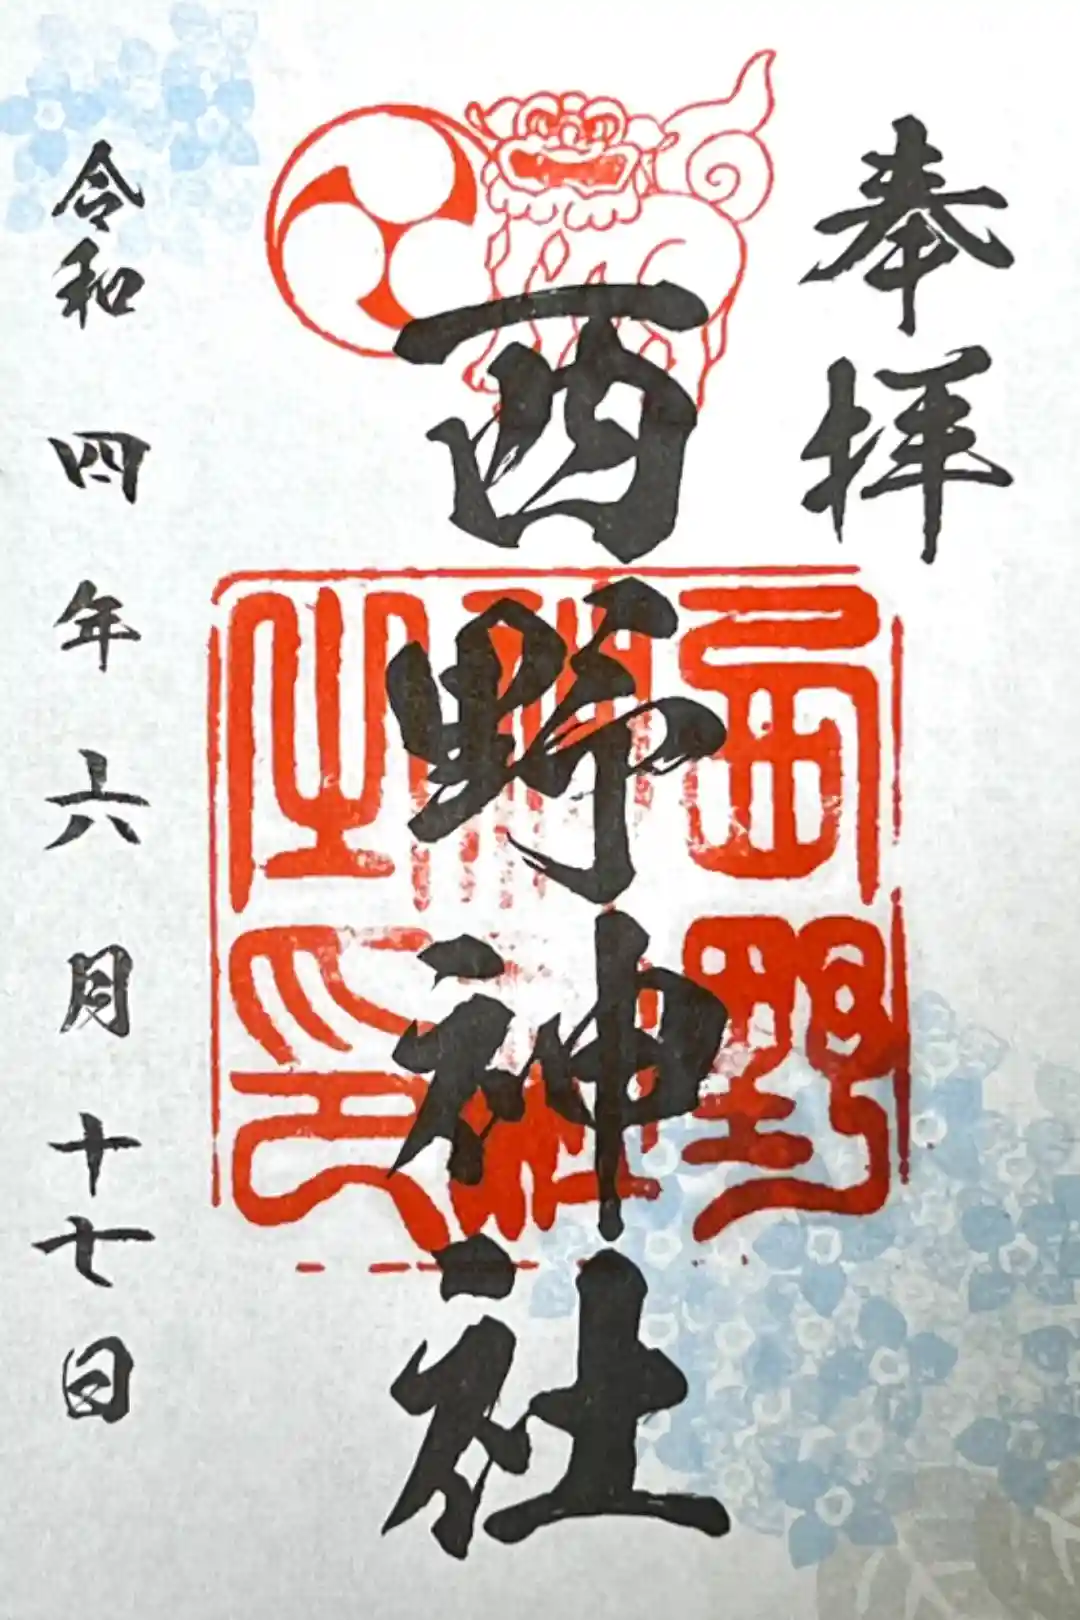 奉拝
西野神社
西野神社之印
令和四年六月十七日